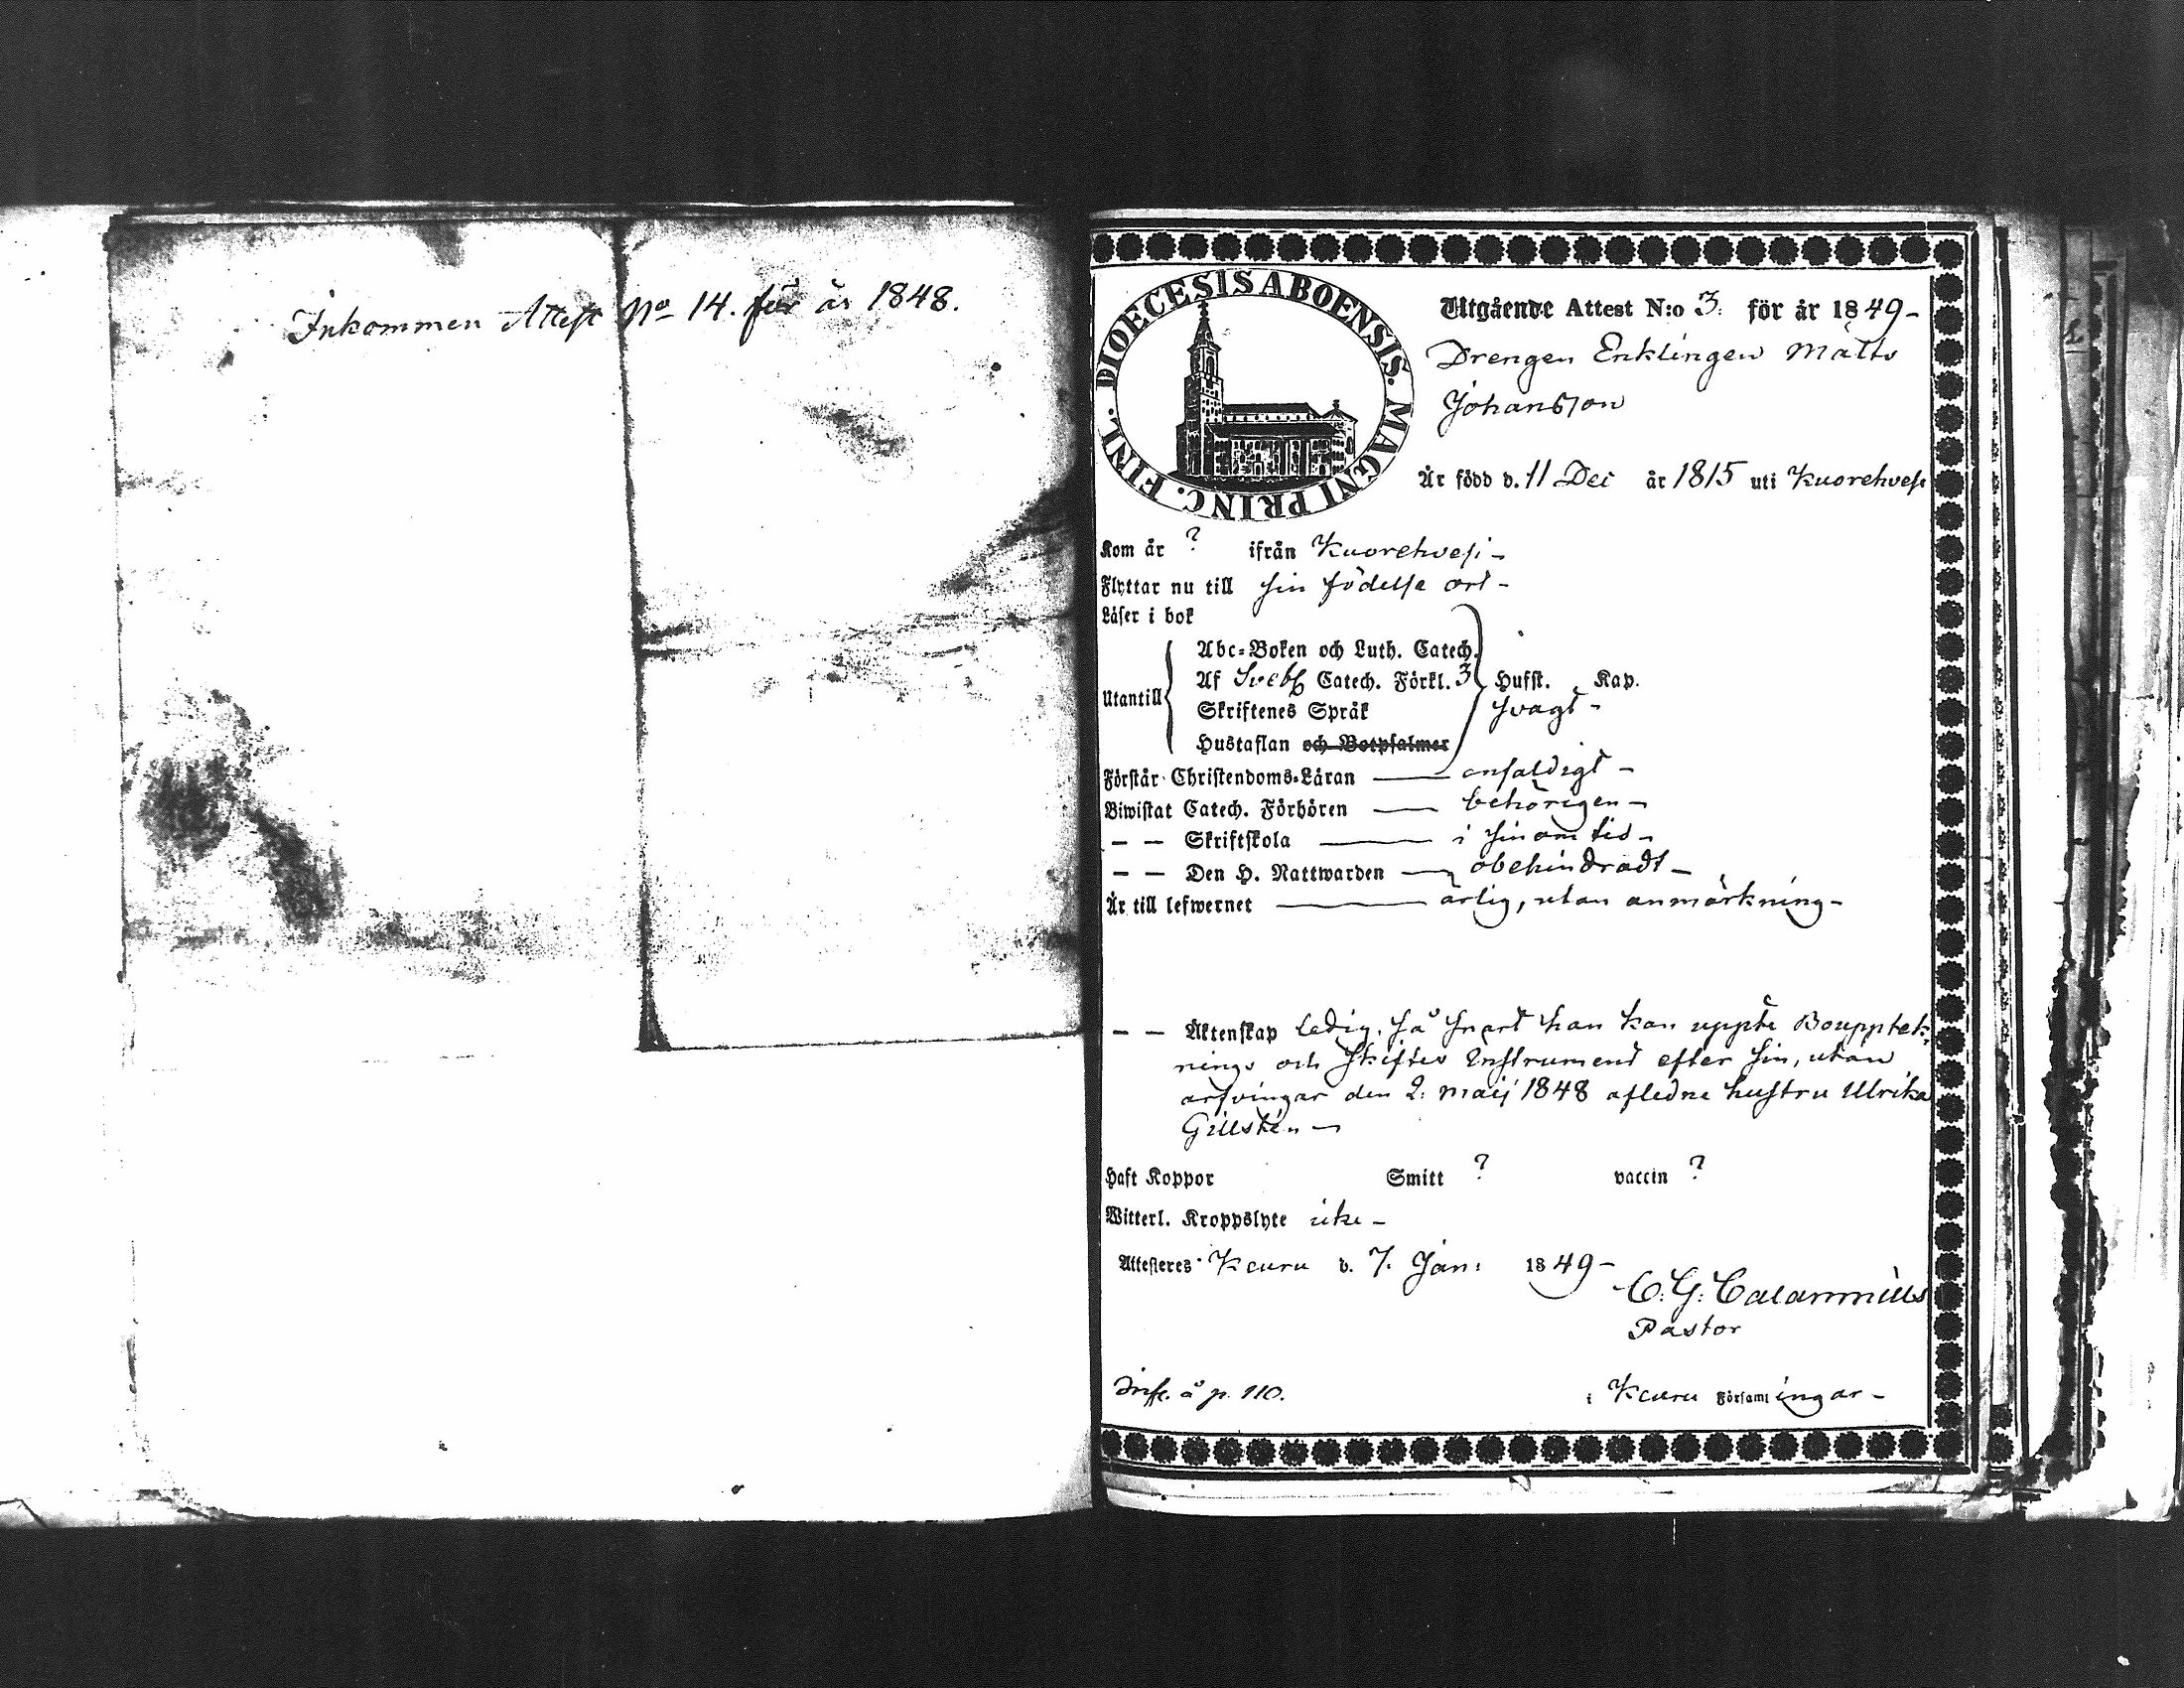 Inkommen Attest No 14. för år 1848.
DIOECESIS ABOENSIS. MAGNI PRINC. FINL.
Utgående Attest N:o 3. för år 1849-
Drengen Enklingen Matts
Johansson
Är född d. 11 Dec år 1815 uti Kuorehvesi
Kom år ? ifrån Kuorehvesi-
Flyttar nu till sin födelse ort-
Läser i bok
Abc-Boken och Luth. Catech.
Utantill
Af Sveb. Catech. Förkl. 3 Hufst. Kap.
Skriftenes Språk svagt-
Hustaflan och Botpsalmer
Förstår Christendoms-Läran enfaldigt-
Biwistat Catech. Förhören behörigen-
— — Skriftskola i sinom tid-
— — Den H. Nattwarden obehindradt-
Är till lefwernet ärlig, utan anmärkning-
— — Äktenskap ledig, så snart han kan uppte Bouppteck-
nings och Skiftes Instrument efter sin, utan
arfvingar den 2. maij 1848 afledne hustru Ulrika
Gillstén-
Haft Koppor Smitt ? vaccin ?
Witterl. Kroppslyte icke-
Attesteres Keuru d. 7. Jan: 1849-
C. G. Calamnius
Pastor
Inf. å p. 110.
i Keuru Församl ingar-